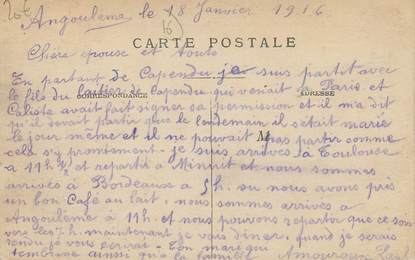 20€
Angoulême le 18 Janvier 1916
Chère épouse et toute
CARTE POSTALE
En partant de Capendu je suis partit avec
le fils du de Capendu qui venait Paris et
CORRESPONDANCE
ADRESSE
Caliste avait fait signer sa permission et il m'a dit
qu'il devait partir que le lendemain il s'était marié
le jour même et il ne pouvait pas partir comme
M
cela s'y promtement. je suis arrivés à Toulouse
a 11h ½ et repartis a Minuit et nous sommes
arrivés à Bordeauxe a 5h. ou nous avons pris
un bon Café au lait, nous sommes arrivés a
Angoulême à 11h et nous pouvons repartir que ce soir
vers les h. maintenant je vais diner, quand je serais
rendu je vous écrirai - Ton mari qui
t'embrasse ainsi que la famille Amouroux Paul